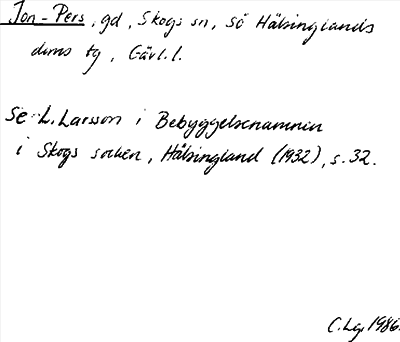 Jon-Pers, gd, Skogs sn, Sö Hälsinglands
doms tg, Gävl.l.
Se L. Larsson i Bebyggelsenamnen
i Skogs socken, Hälsingland (1932), s. 32.
C. Lg, 1986.